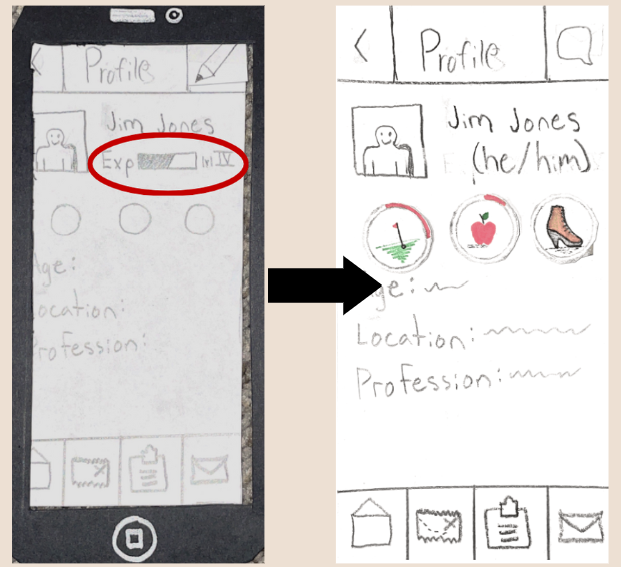 Profile
Jim Jones
Exp lvl IV
Age:
ocation:
rofession:
Profile
Jim Jones
(he/him)
ge:
Location:
Profession: